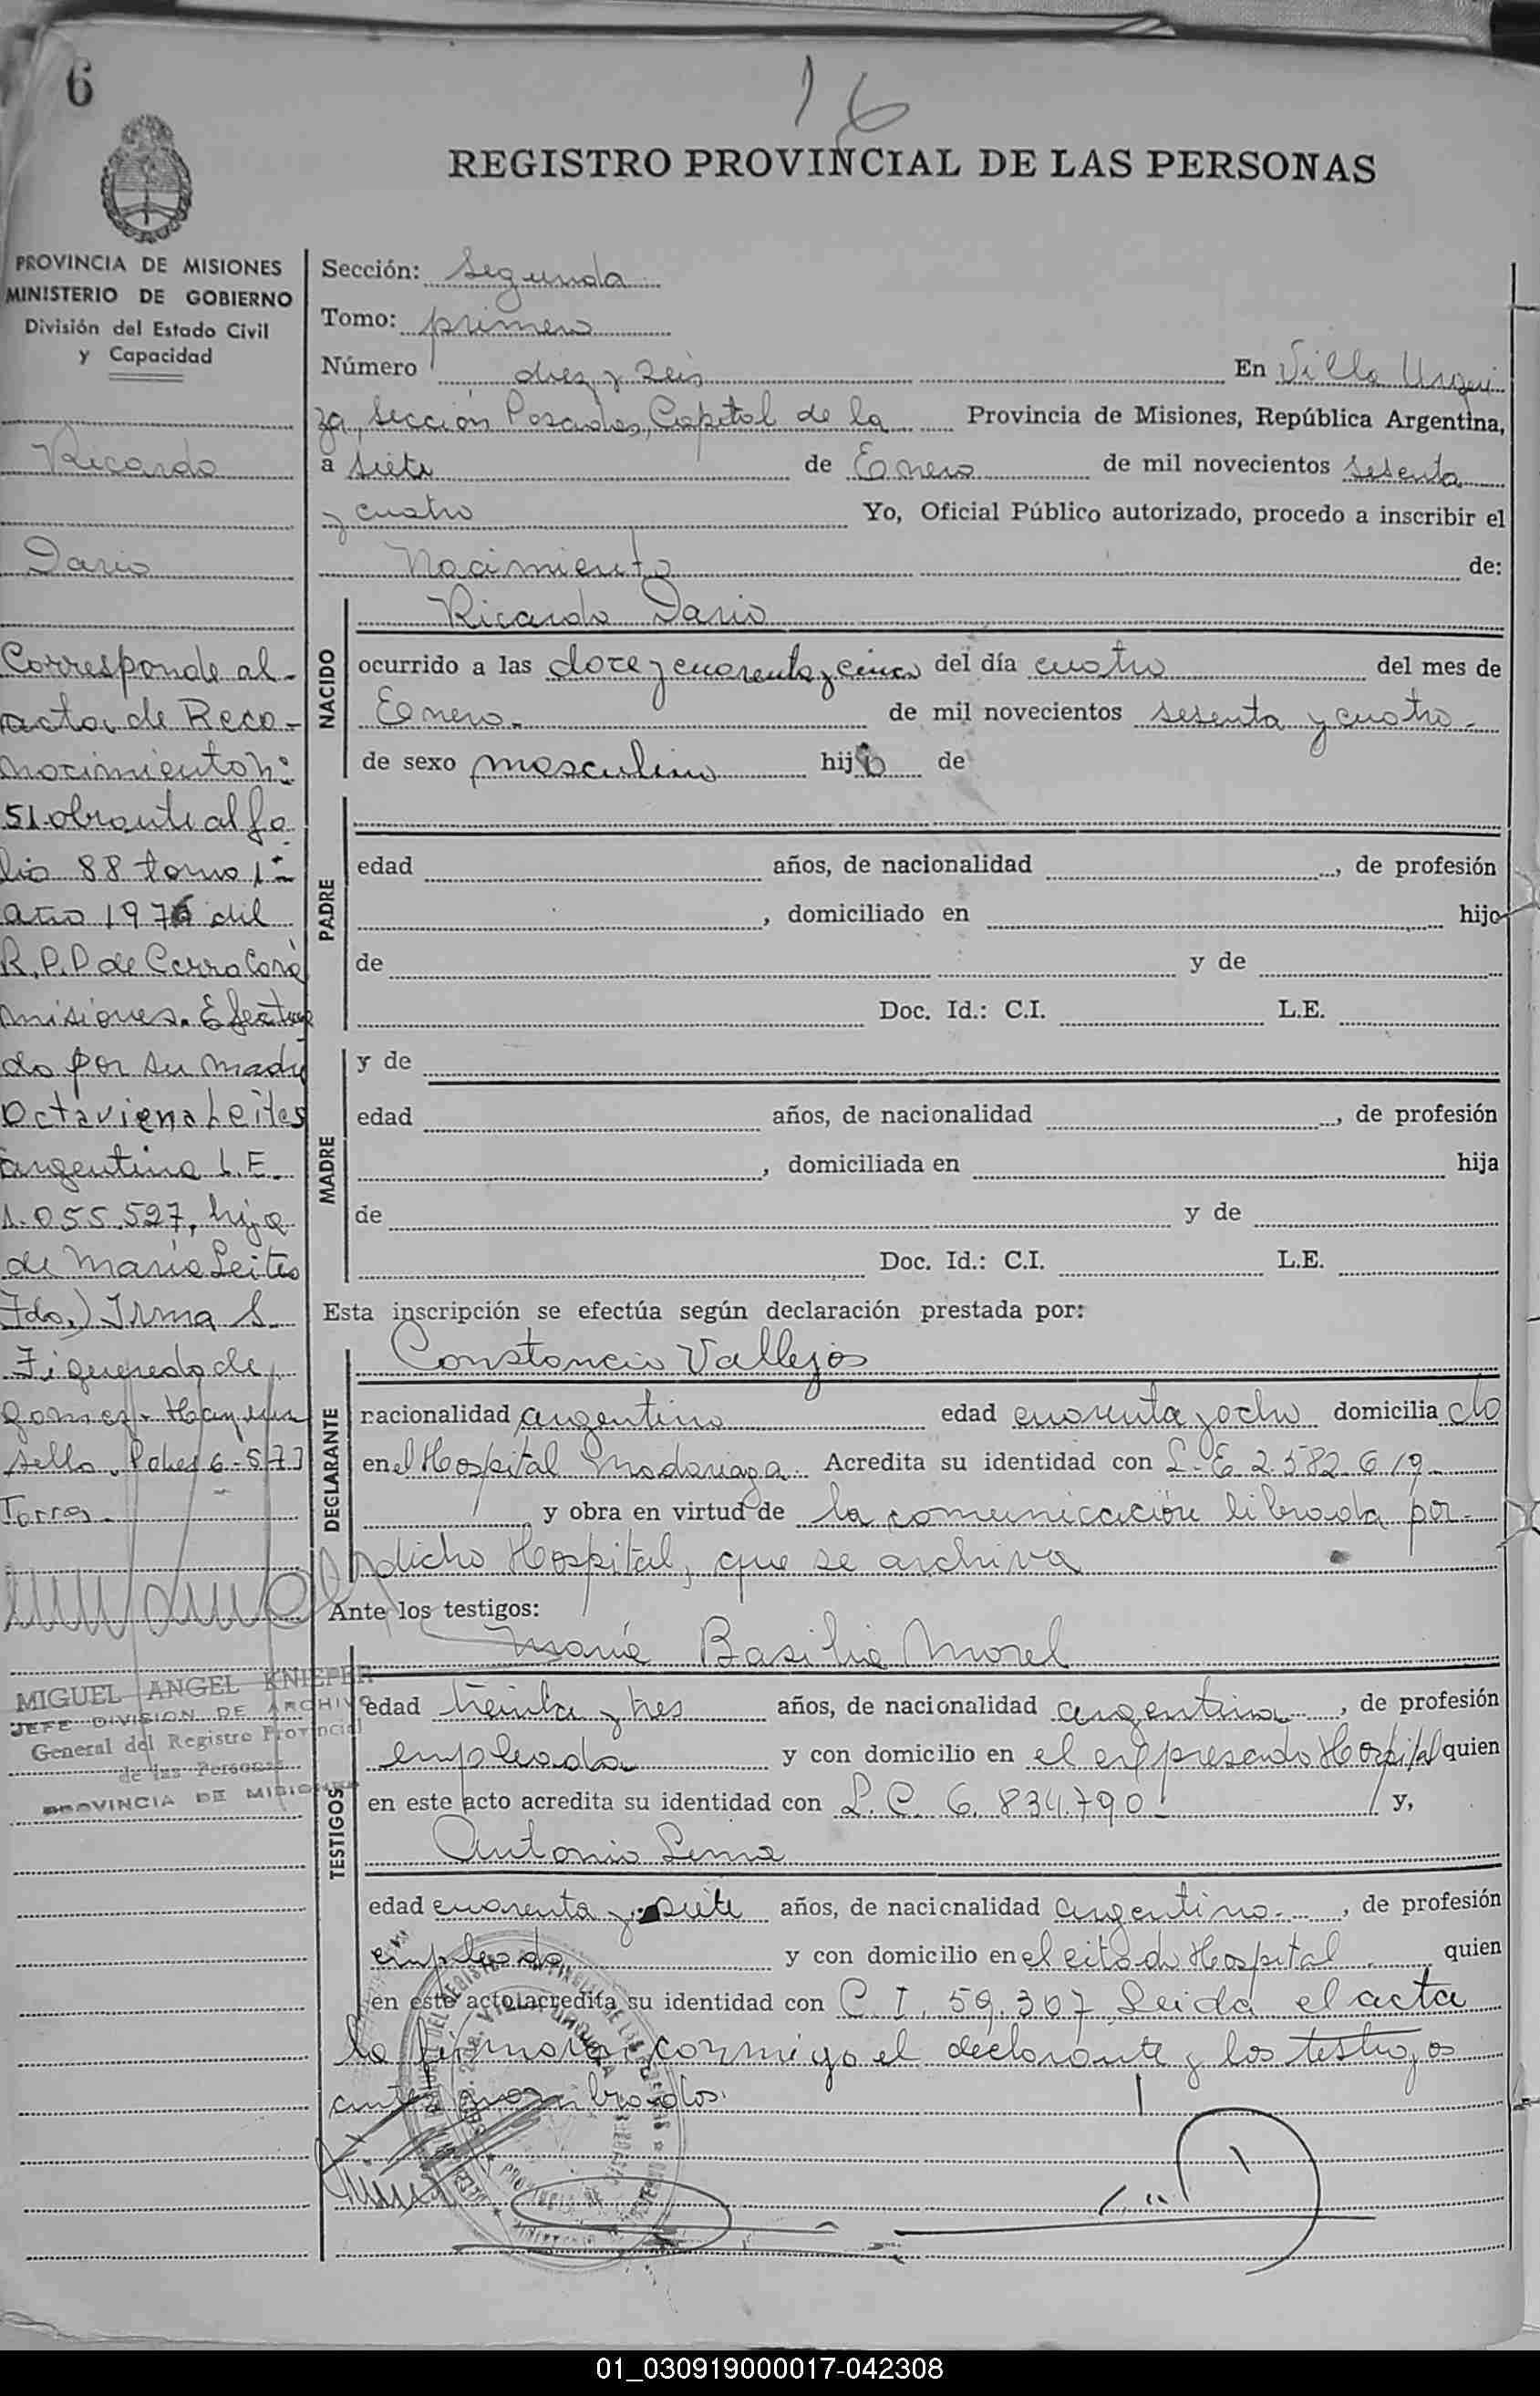 6
16
REGISTRO PROVINCIAL DE LAS PERSONAS
PROVINCIA DE MISIONES
MINISTERIO DE GOBIERNO
División del Estado Civil
y Capacidad
Ricardo
Dario
Corresponde al
acta de Reco-
nocimiento nº
51 obrante al fo
lio 88 tomo 1º
año 1976 del
R.P.P de Cerro Corá
misiones. Efectua
do por su madre
Octaviana Leites
argentina L.E.
1.055.527, hija
de Maria Leites
Fdo.) Irma S.
Figueredo de
Gomez. Hay un
sello.
Torres.
MIGUEL ANGEL KNIEPER
JEFE DIVISION DE ARCHIVO
General del Registro Provincial
de las Personas
PROVINCIA DE MISIONES
Sección: Segunda
Tomo: primero
Número diez y seis En Villa Urqui
za, sección Posadas, Capital de la Provincia de Misiones, República Argentina,
a siete de Enero de mil novecientos sesenta
y cuatro Yo, Oficial Público autorizado, procedo a inscribir el
Nacimiento de:
NACIDO
Ricardo Dario
ocurrido a las doce y cuarenta y cinco del día cuatro del mes de
Enero.- de mil novecientos sesenta y cuatro.-
de sexo masculino hijo de
PADRE
edad años, de nacionalidad , de profesión
, domiciliado en hijo
de y de
Doc. Id.: C.I. L.E.
MADRE
y de
edad años, de nacionalidad , de profesión
, domiciliada en hija
de y de
Doc. Id.: C.I. L.E.
Esta inscripción se efectúa según declaración prestada por:
DECLARANTE
Constancio Vallejos
nacionalidad argentino edad cuarenta y ocho domicilia do
en el Hospital Madariaga. Acredita su identidad con L.E. 2.582.619
y obra en virtud de la comunicación librada por
dicho Hospital, que se archiva
Ante los testigos:
TESTIGOS
María Basilia Morel
edad treinta y tres años, de nacionalidad argentina , de profesión
empleada y con domicilio en el expresado Hospital quien
en este acto acredita su identidad con L.C. 6.834.790 y,
Antonio
edad cuarenta y siete años, de nacionalidad argentino , de profesión
empleado y con domicilio en el citado Hospital quien
en este acto acredita su identidad con C.I. 59.307 Leida el acta
la firmaron conmigo el declarante y los testigos
antes nombrados.
01_030919000017-042308